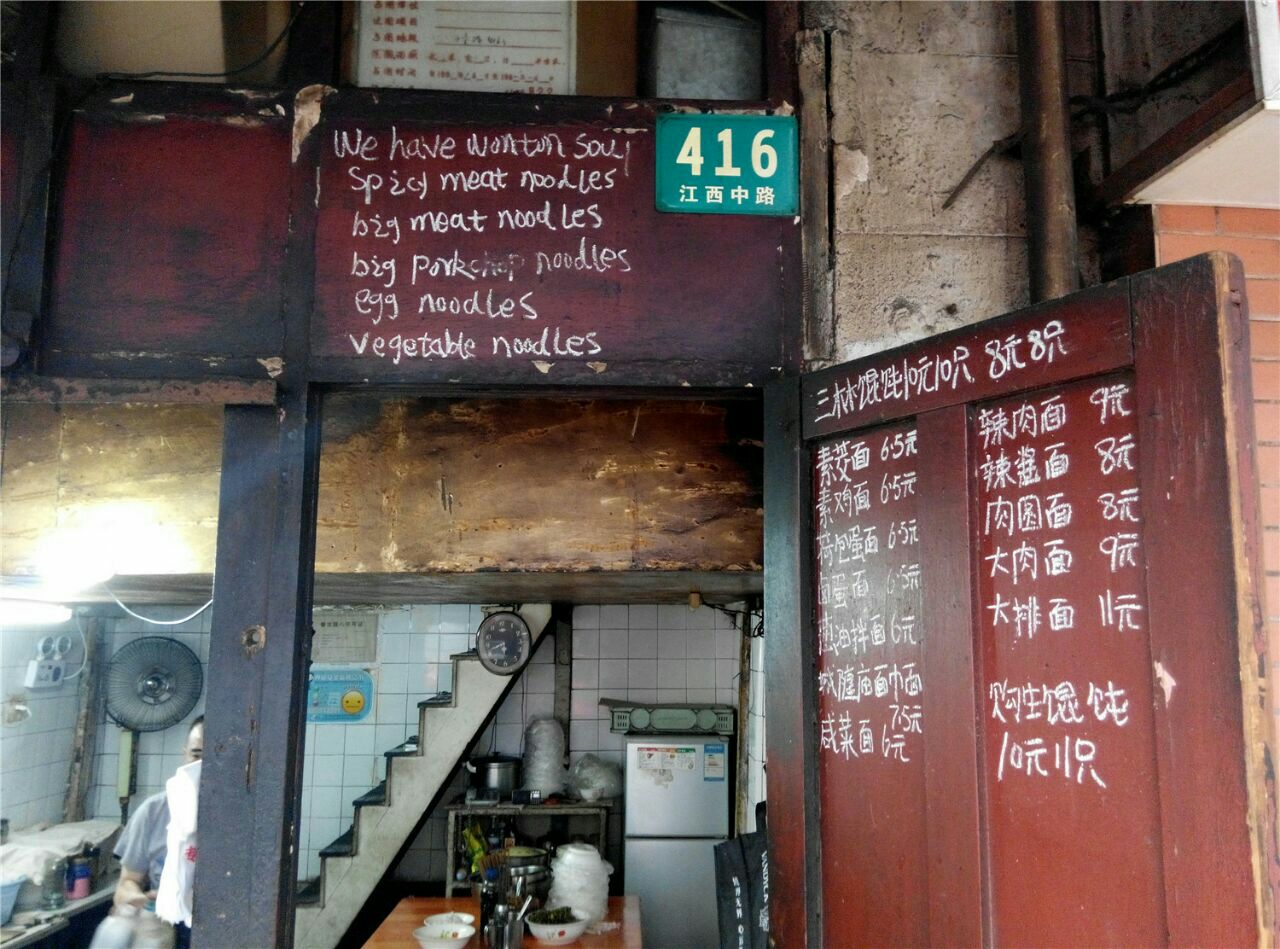 We have wonton soup
spicy meat noodles
big meat noodles
big porkchop noodles
egg noodles
vegetable noodles
416
江西中路
三林馄饨10元10只 8元8只
素茭面 6.5元
素鸡面 6.5元
荷包蛋面 6.5元
卤蛋面 6.5元
葱油拌面 6元
面
7.5元
咸菜面 6元
辣肉面 9元
辣酱面 8元
肉圆面 8元
大肉面 9元
大排面 11元
馄饨
10元11只